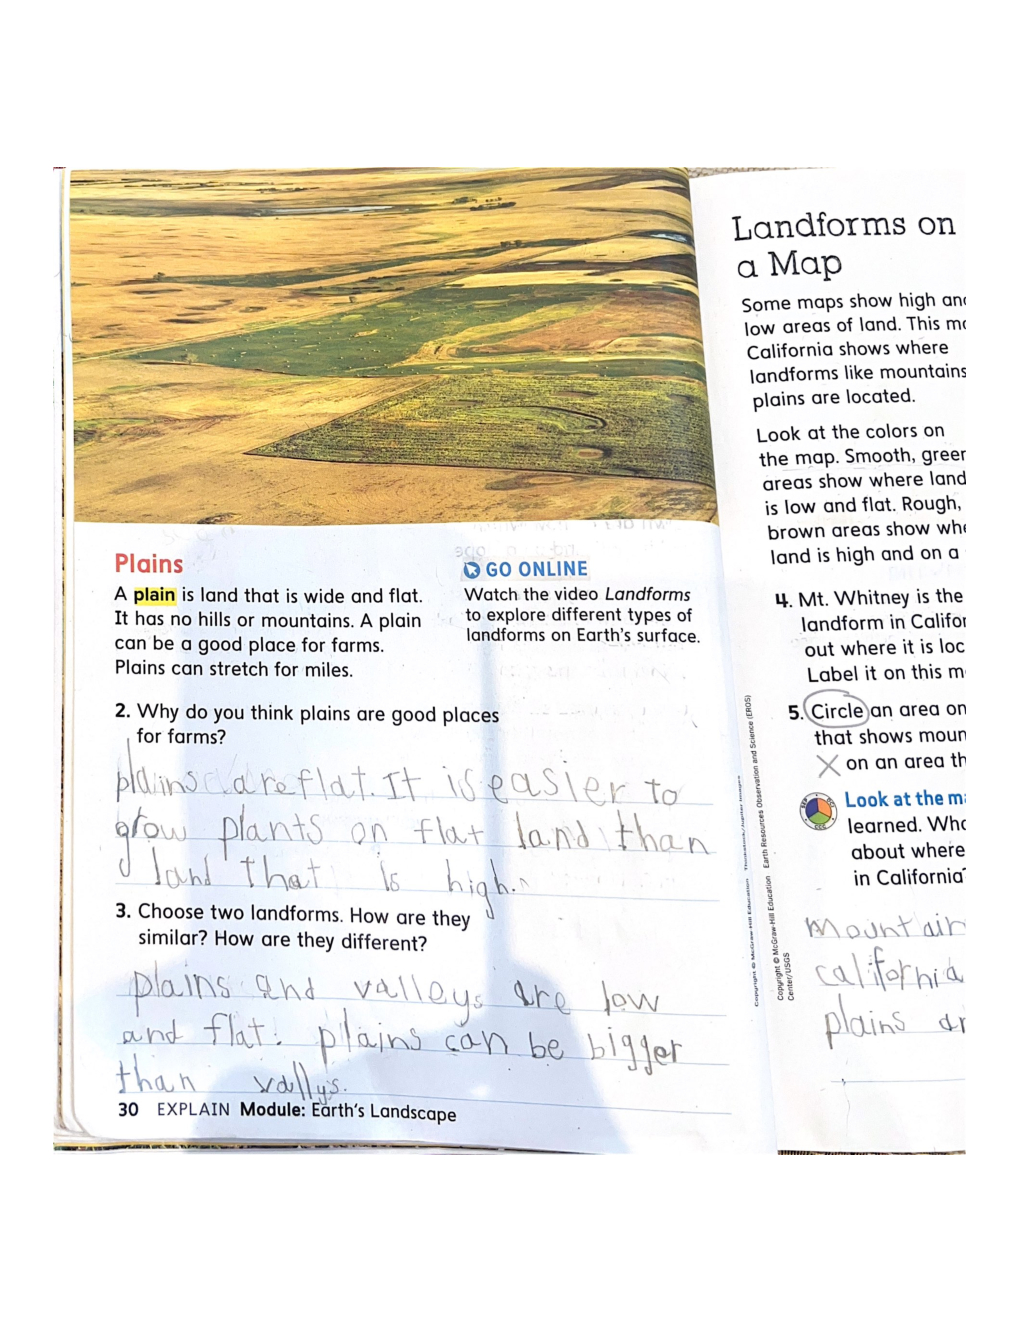 Plains
A plain is land that is wide and flat.
It has no hills or mountains. A plain
can be a good place for farms.
Plains can stretch for miles.
GO ONLINE
Watch the video Landforms
to explore different types of
landforms on Earth's surface.
2. Why do you think plains are good places
for farms?
plains are flat. It is easier to
grow plants on flat land than
land that is high.
3. Choose two landforms. How are they
similar? How are they different?
plains and valleys are low
and flat. plains can be bigger
than vallys.
30 EXPLAIN Module: Earth's Landscape
Copyright © McGraw-Hill Education
Copyright © McGraw-Hill Education Earth Resources Observation and Science (EROS)
Center/USGS
Landforms on
a Map
Some maps show high
low areas of land. This
California shows where
landforms like mountains
plains are located.
Look at the colors on
the map. Smooth,
areas show where land
is low and flat. Rough,
brown areas show
land is high and on a
4. Mt. Whitney is the
landform in
out where it is
Label it on this
5. Circle an area on
that shows
X on an area
Look at the
learned.
about where
in California
mountain
california
plains